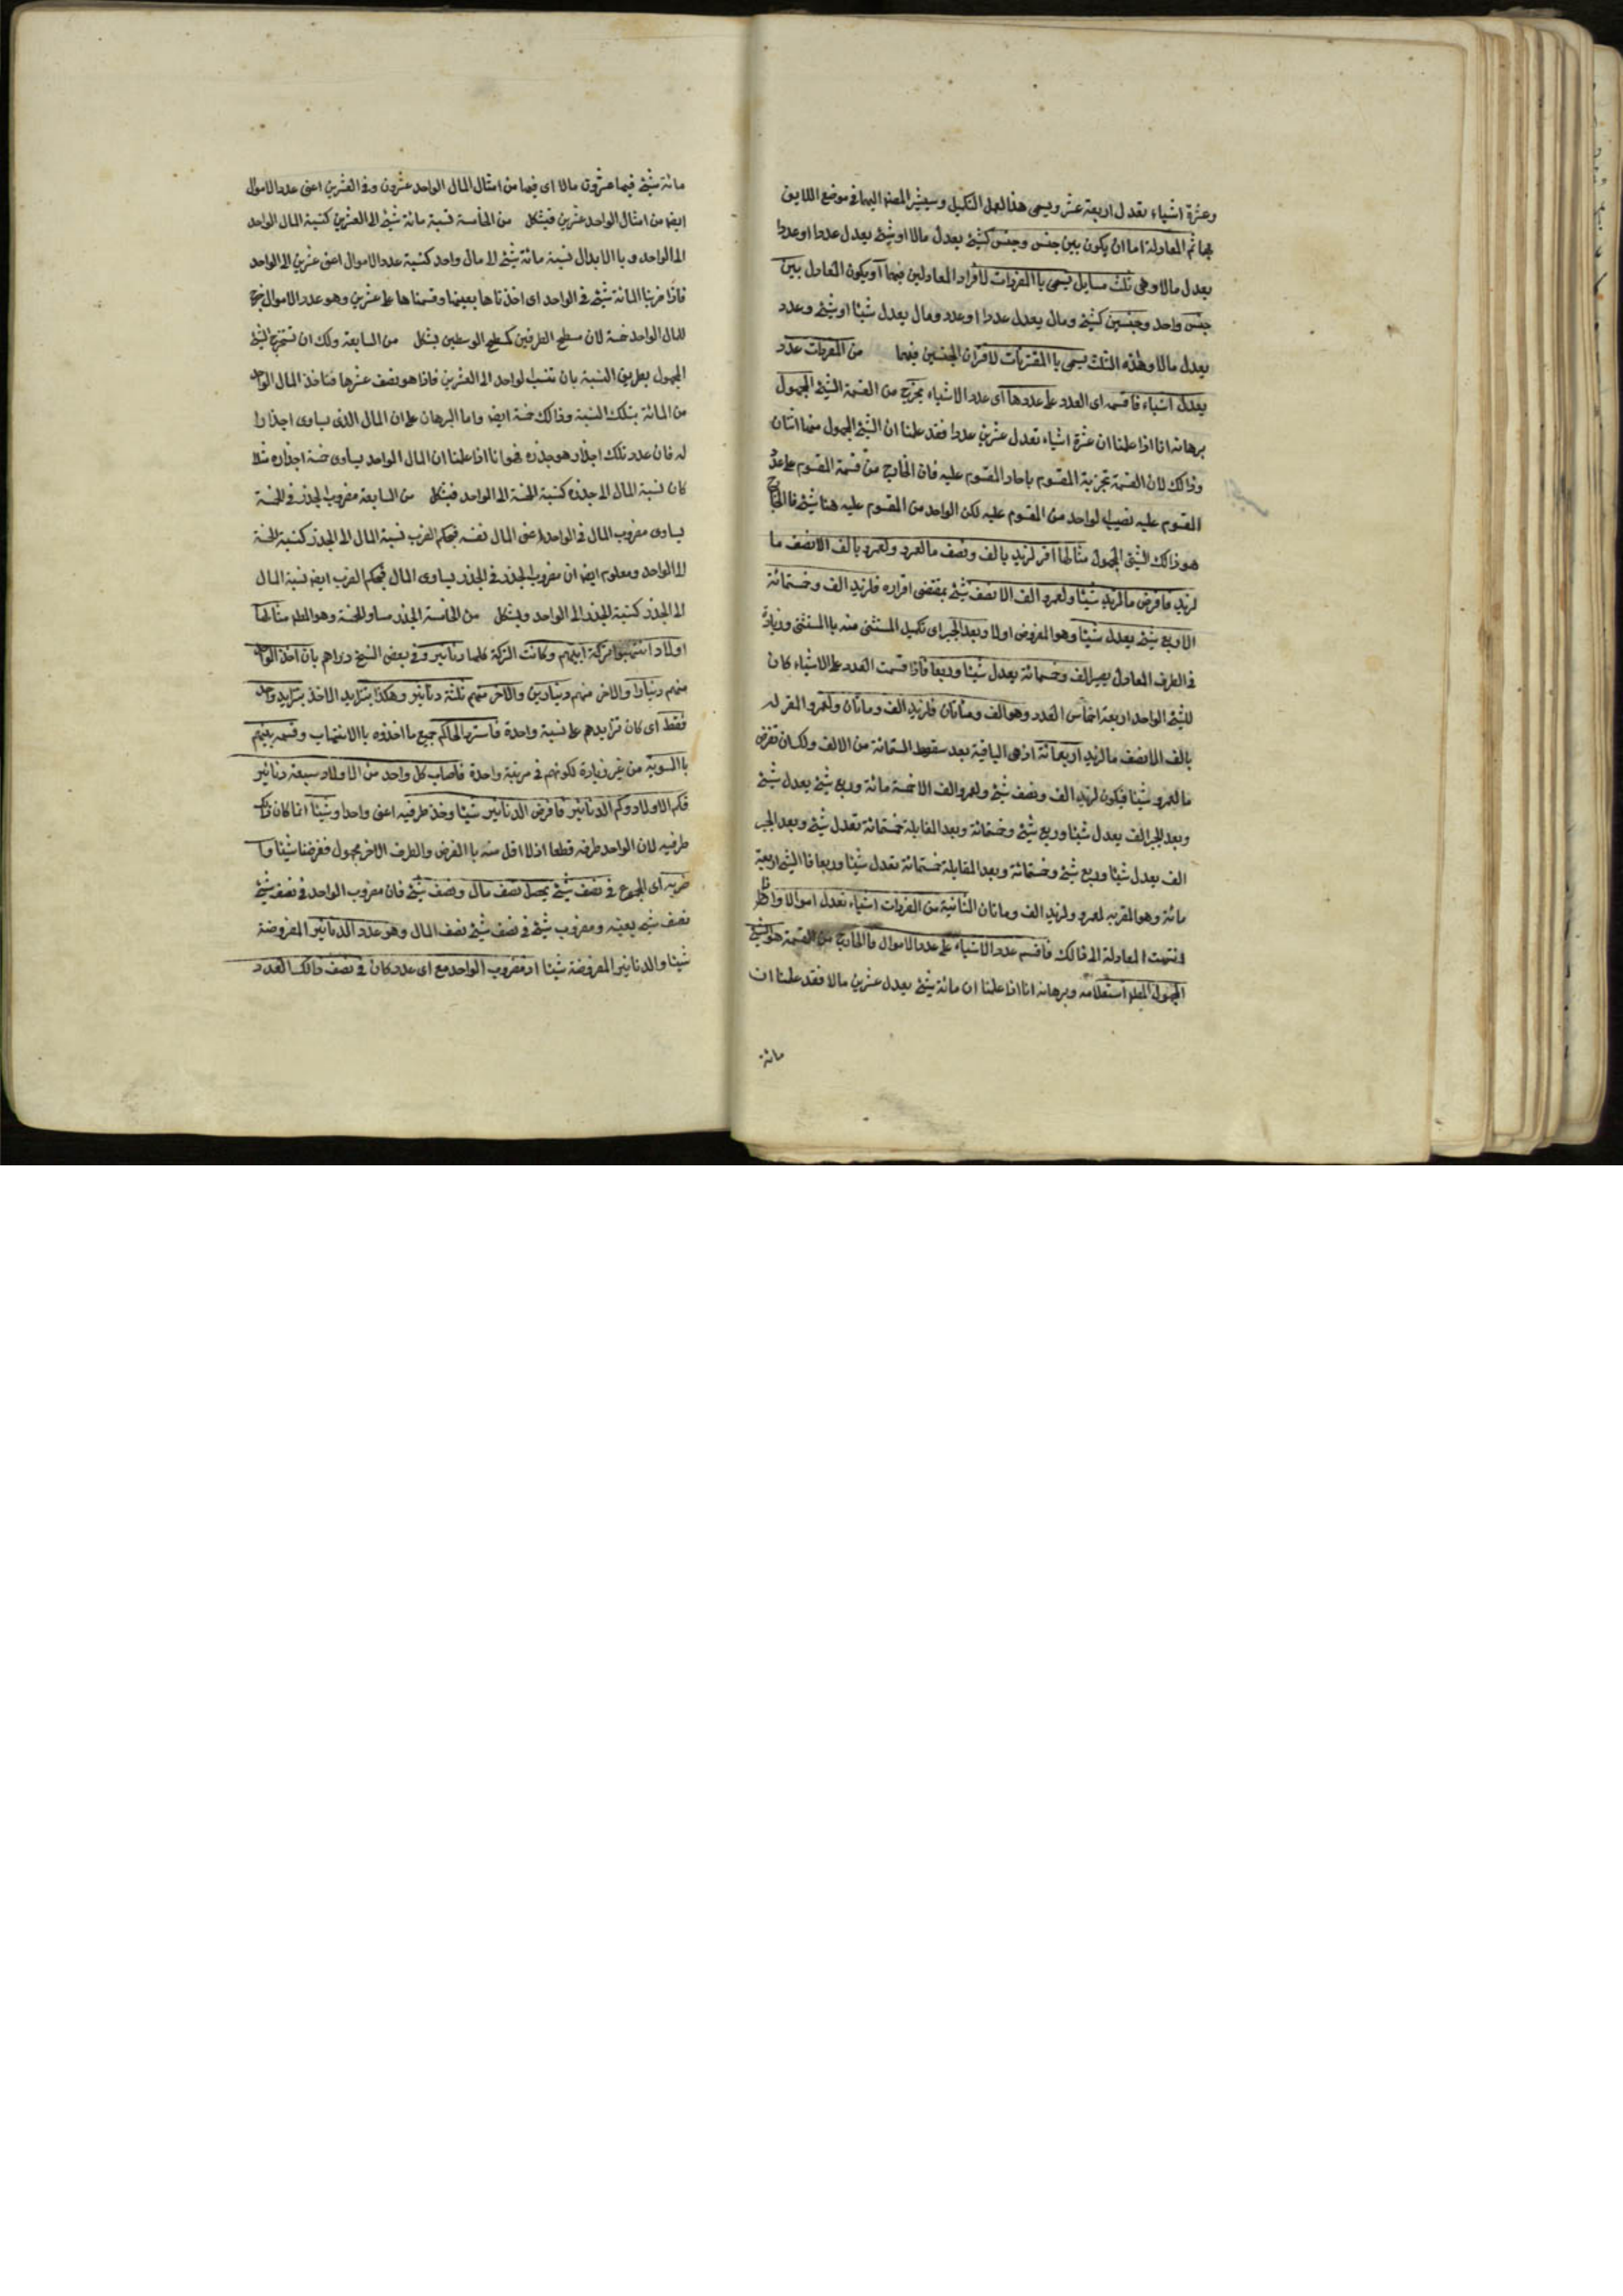 وعشرة اشياء تعدل اربعة عشر ويسمى هذا العمل التكميل وسيشير المصنف اليهما في موضع اللايق
بهما ثم المعادلة اما ان يكون بين جنس وجنس كشيئ يعدل مالا او شيئ يعدل عددا او عددا
يعدل مالا وهى ثلث مسايل تسمى باالمفردات لافراد المعادلين فيهما او يكون التعادل بين
جنس واحد وجنسين كشيئ ومال يعدل عددا او عدد ومال يعدل شيئا او شيئ وعدد
يعدل مالا وهذه الثلث يسمى باالمقترنات لاقتران الجنسين فيهما من المفردات عدد
يعدل اشياء فاقسمه اى العدد على عددها اى عدد الاشياء يخرج من القسمة الشيئ المجهول
برهانه انا اذا علمنا ان عشرة اشياء تعدل عشرين عددا فقد علمنا ان الشيئ المجهول منها اثنان
وذالك لان القسمة تجزية المقسوم باحاد المقسوم عليه فان الخارج من قسمة المقسوم على عدد
المقسوم عليه نصيب الواحد من المقسوم عليه لكن الواحد من المقسوم عليه هنا شيئ فالخارج
هو ذالك الشيئ المجهول مثالها اقر لزيد بالف ونصف مالعمرو ولعمرو بالف الانصف ما
لزيد فافرض مالزيد شيئا ولعمرو الف الانصف شيئ بمقتضى اقراره فلزيد الف وخمسمائة
الاربع شيئ يعدل شيئا وهو المفروض اولا وبعد الجبر اى تكميل المستثنى منه باالمستثنى وزيادة
فى الطرف المعادل يصير الف وخمسمائة يعدل شيئا وربعا فاذا قسمت العدد على الاشياء كان
للشيئ الواحد اربعة اخماس العدد وهو الف ومأتان فلزيد الف ومأتان ولعمرو المقر له
بالف الانصف مالزيد اربعمائة اذ هى الباقية بعد سقوط الستمائة من الالف ولك ان تفرض
مالعمرو شيئا فيكون لزيد الف ونصف شيئ ولعمرو الف الاخمسة مائة وربع شيئ يعدل شيئ
وبعد الجبر الف يعدل شيئا وربع شيئ وخمسمائة وبعد المقابلة خمسمائة تعدل شيئ وبعد الجبر
الف يعدل شيئا وربع شيئ وخمسمائة وبعد المقابلة خمسمائة تعدل شيئا وربعا فاالشيئ اربعة
مائة وهو المقر به لعمرو ولزيد الف ومأتان الثانية من المفردات اشياء تعدل اموالا واذا
انتهت المعادلة الى ذالك فاقسم عدد الاشياء على عدد الاموال فاالخارج من القسمة هو الشيئ
المجهول المط استعلامه وبرهانه انا اذا علمنا ان مائة شيئ يعدل عشرين مالا فقد علمنا ان
مائة
مائة شيئ فيها عشرون مالا اى فيها من امثال المال الواحد عشرون وفى العشرين اعنى عدد الاموال
ايضا من امثال الواحد عشرين فبشكل من الخامسة نسبة مائة شيئ الى العشرين كنسبة المال الواحد
الى الواحد وباالابدال نسبة مائة شيئ الى مال واحد كنسبة عدد الاموال اعنى عشرين الى الواحد
فاذا ضربنا المائة شيئ فى الواحد اى اخذناها بعينها وقسمناها على عشرين وهو عدد الاموال خرج
للمال الواحد خمسة لان مسطح الطرفين كمسطح الوسطين بشكل من السابعة ولك ان تستخرج الشيئ
المجهول بطريق النسبة بان تنسب الواحد الى العشرين فاذا هو نصف عشرها فتاخذ المال الواحد
من المائة بتلك النسبة وذالك خمسة ايضا واما البرهان على ان المال الذى يساوى اجذارا
له فان عدد تلك اجذار هو جذره فهو انا اذا علمنا ان المال الواحد يساوى خمسة اجذاره مثلا
كان نسبة المال الى جذره كنسبة الخمسة الى الواحد فبشكل من السابعة مضروب الجذر فى الخمسة
يساوى مضروب المال فى الواحد اعنى المال نفسه فبحكم الضرب نسبة المال الى الجذر كنسبة الخمسة
الى الواحد ومعلوم ايضا ان مضروب الجذر فى الجذر يساوى المال فبحكم الضرب ايضا نسبة المال
الى الجذر كنسبة الجذر الى الواحد وبشكل من الخامسة الجذر مساو للخمسة وهو المط مثالها
اولاد انتهبوا تركة ابيهم وكانت التركة كلها دنانير وفى بعض النسخ دراهم بان اخذ الواحد
منهم دينارا والاخر منهم دينارين والاخر منهم ثلثة دنانير وهكذا يتزايد الاخذ بتزايد واحد
فقط اى كان تزايدهم على نسبة واحدة فاسترد الحاكم جميع ما اخذوه باالانتهاب وقسمه بينهم
باالسوية من غير زيادة لكونهم فى مرتبة واحدة فاصاب كل واحد من الاولاد سبعة دنانير
فكم الاولاد وكم الدنانير فافرض الدنانير شيئا وخذ طرفيه اعنى واحدا وشيئا انما كان ذلك
طرفيه لان الواحد طرفه قطعا اذ لا اقل منه باالفرض والطرف الاخر مجهول ففرضنا شيئا وا
ضربه اى المجموع فى نصف شيئ يحصل نصف مال ونصف شيئ فان مضروب الواحد فى نصف شيئ
نصف شيئ بعينه ومضروب شيئ فى نصف شيئ نصف المال وهو عدد الدنانير المفروضة
شيئا والدنانير المفروضة شيئا اذ مضروب الواحد مع اى عدد كان فى نصف ذالك العدد